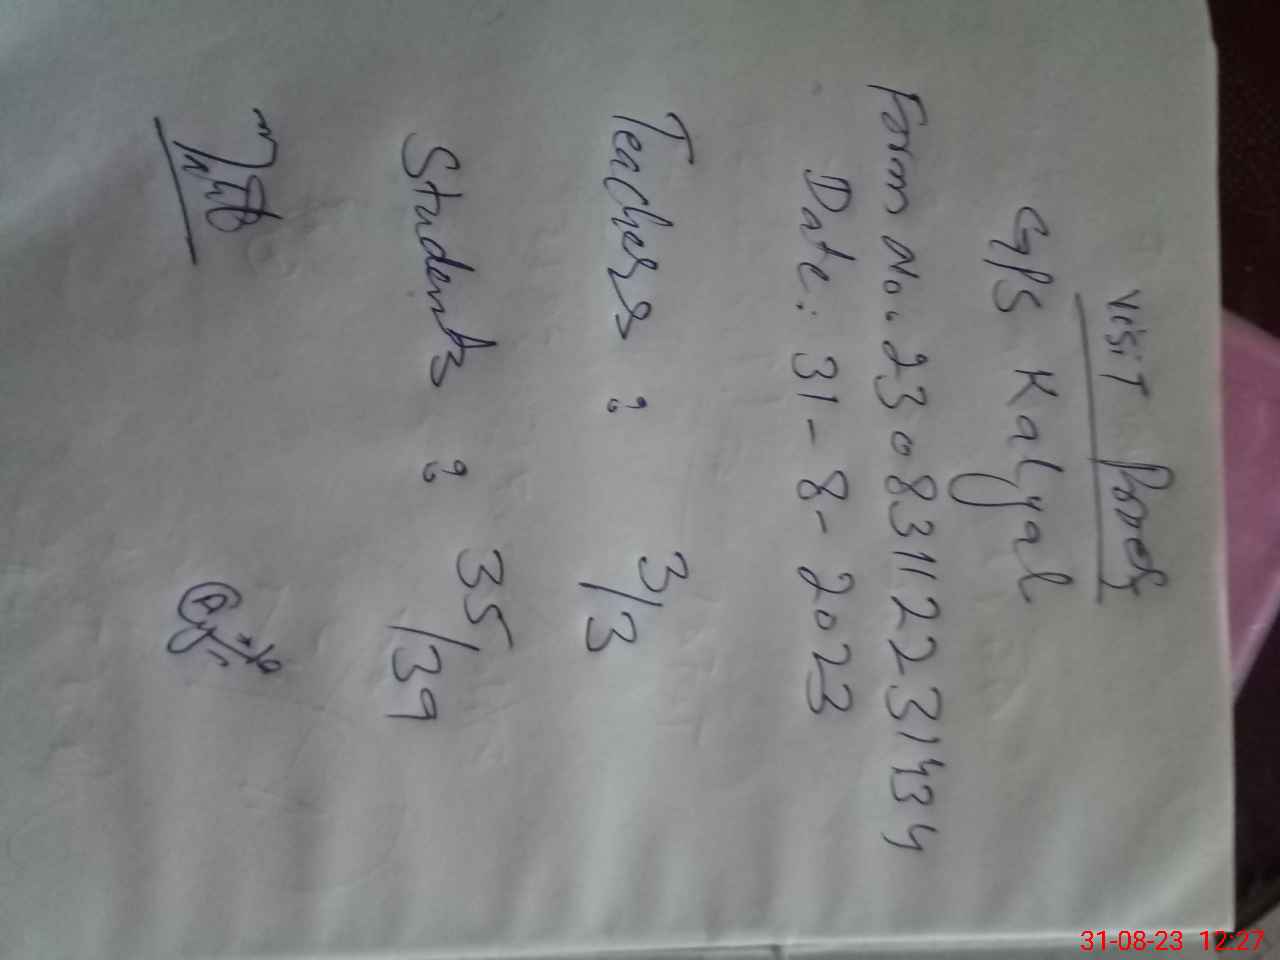 Visit Proof
GPS Kalyal
Form No. 230831122231434
Date: 31-8-2023
Teachers : 3/3
Students : 35/39
31-08-23 12:27